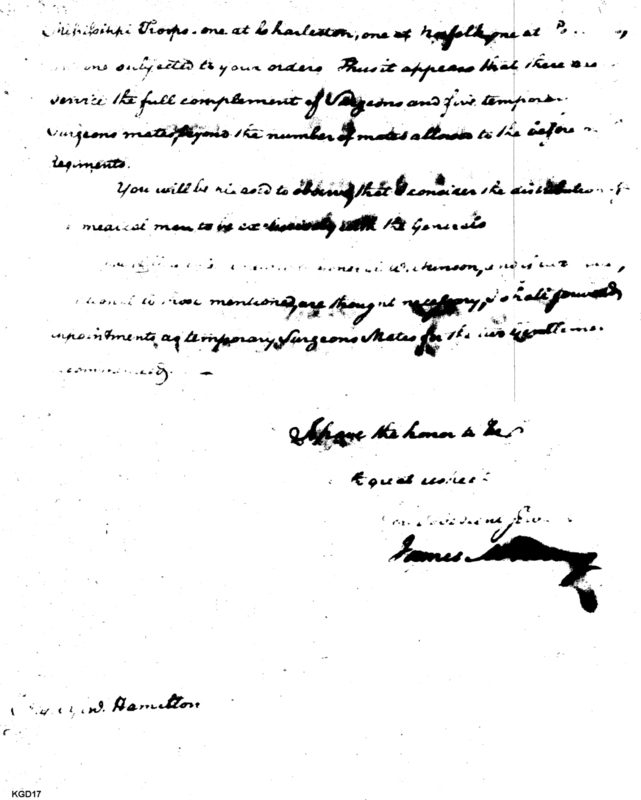 Mississippi Troops. one at Charleston, one at Norfolk, one at
one subjected to your orders Thus it appears that there are
service the full complement of Surgeons and five tempora
Surgeons mates, beyond the number of mates allowed to the before
Regiments.
You will be pleased to observe that I consider the distribution of
medical men to be exclusively with the Generals
General Wilkinson, and
to those mentioned, are thought necessary, I shall forward
appointments, as temporary Surgeons Mates for the two gentlemen
recommended
I have the honor to be
great respect
obedient
James McHenry
W. Hamilton
KGD17